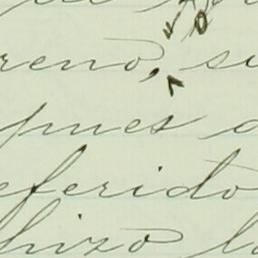 reno, su
pues
eferido
hizo la